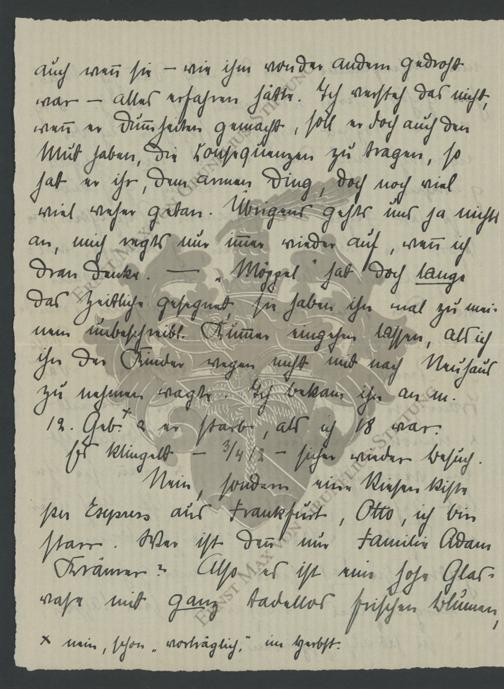 auch weñ sie – wie ihm von der andern gedroht
war – alles erfahren hätte. Ich versteh das nicht,
weñ er Dum̃heiten gemacht, soll er doch auch den
Mut haben, die Consequenzen zu tragen, so
hat er ihr, dem armen Ding, doch noch viel
viel weher getan. Übrigens gehts uns ja nichts
an, mich regts nur im̃er wieder auf, weñ ich
dran denke. — „Möppel" hat doch lange
das Zeitliche gesegnet, sie haben ihn mal zu mei-
nem unbeschreibl. Kum̃er eingehen lassen, als ich
ihn der Kinder wegen nicht mit nach Neuhaus
zu nehmen wagte. Ich bekam ihn an m.
12. Geb.x & er starb, als ich 18 war.
Es klingelt – 3/4 8 – sicher wieder Besuch.
Nein, sondern eine Riesen Kiste
per Express aus Frankfurt, Otto, ich bin
starr. Wer ist deñ nur Familie Adam
Krämer? Also es ist eine hohe Glas-
vase mit ganz tadellos frischen Blumen,
x nein, schon „vorträglich", im Herbst.
ERNST MAX VON GRUNELIUS-STIFTUNG
ERNST MAX VON GRUNELIUS-STIFTUNG